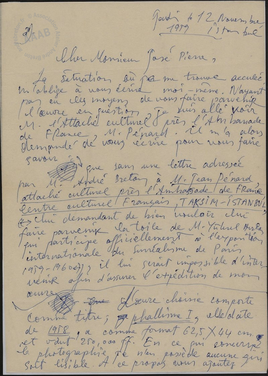 12 Novembre
1959 Istanbul
Cher Monsieur José Pierre,
La situation où je me trouve acculée
m'oblige à vous écrire moi-même. N'ayant
pas eu les moyens de vous faire parvenir
l'œuvre en question, je suis allé voir
M. l'Attaché culturel près l'Ambassade
de France, M. Pénard. Il m'a alors
demandé de vous écrire pour vous faire
savoir
que sans une lettre adressée
par M. André Breton à M. Jean Pénard
attaché culturel près l'Ambassade de France
Centre culturel Français, TAKSIM-ISTANBUL
lui demandant de bien vouloir lui
faire parvenir la toile de M.
qui participe officiellement à l'exposition
internationale du surréalisme de Paris
1959-1960, il lui serait impossible d'inter
venir afin d'assurer l'expédition de mon
œuvre.
L'œuvre choisie comporte
comme titre: phallisme I, elle date
de 1958, a comme format 62,5 X 44 cm
et vaut 250.000 ff. En ce qui concerne
la photographie je n'en possède aucune qui
soit A ce propos vous ajoutez